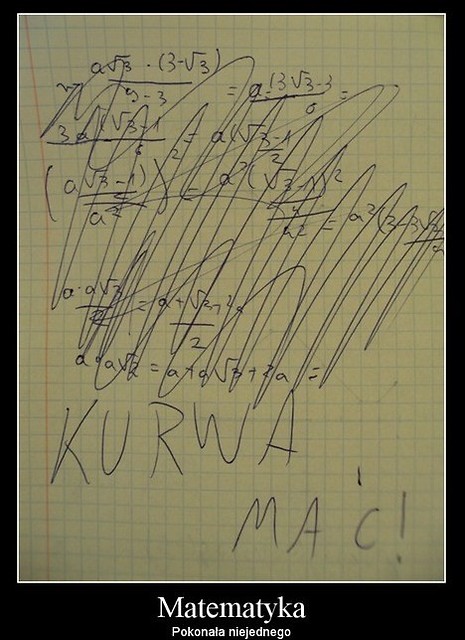 a√3 · (3-√3)
9 - 3
= a(3√3-3
6
=
3a(√3-1
6
= a(√3-1
2
(a√3-1)
2
a²
)² =
a²(√3-1)²
4
a²
= a²(3-
a·a√3
2
=
2
a·a√3 = a+a√3+2a =
KURWA
MAĆ!
Matematyka
Pokonała niejednego